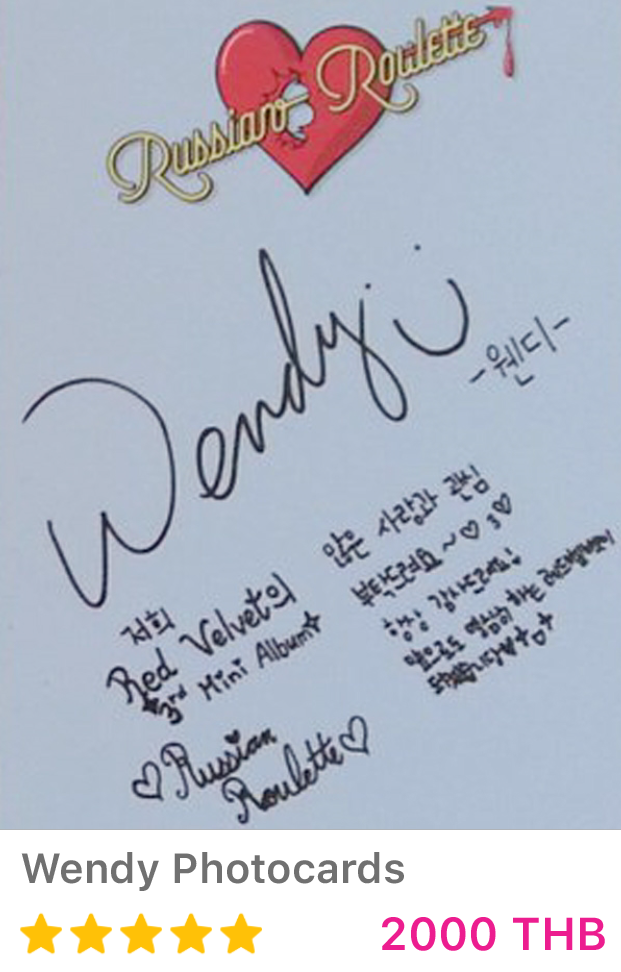 Russian Roulette
Wendy
-웬디-
저희
Red Velvet의
3rd Mini Album
Russian
Roulette
많은 사랑과 관심
부탁드려요~♡3♡
항상 감사드려요!
앞으로도 열심히 하는 레드벨벳이
되겠습니다
Wendy Photocards
2000 THB